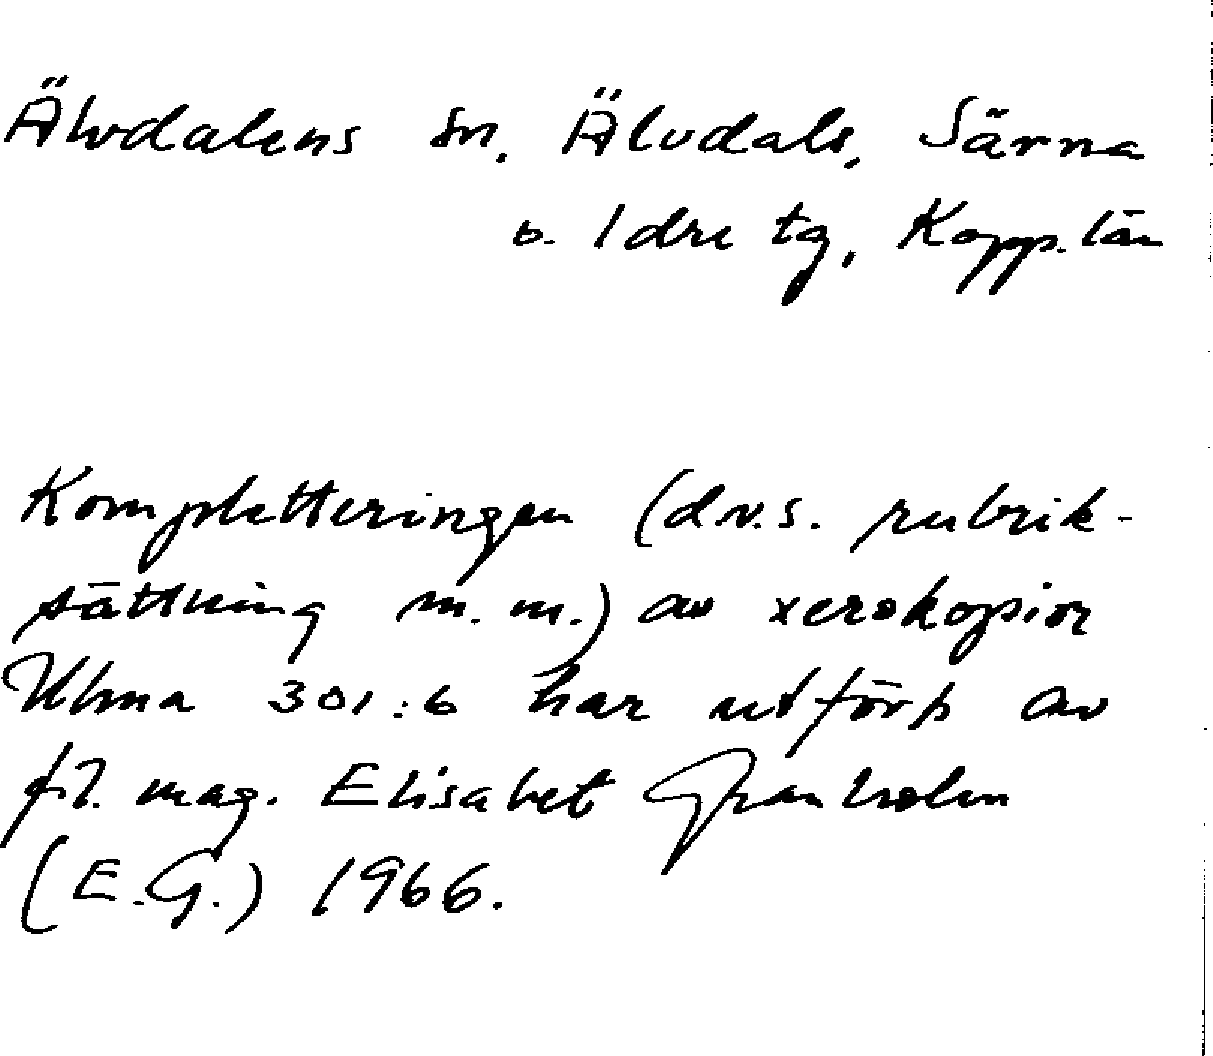 Älvdalens sn, Älvdals, Särna
o. Idre tg, Kopp. län
Kompletteringen (d.v.s. rubrik-
sättning m.m.) av xerokopior
Ulma 301:6 har utförts av
fil. mag. Elisabet Granholm
(E.G.) 1966.